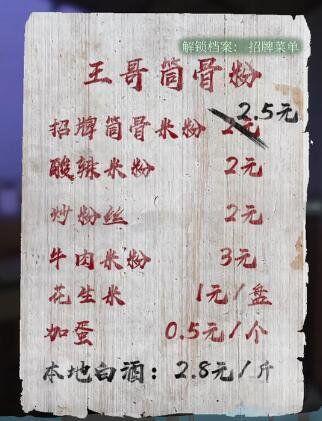 解锁档案：招牌菜单
王哥筒骨粉
2.5元
招牌筒骨米粉 2元
酸辣米粉 2元
炒粉丝 2元
牛肉米粉 3元
花生米 1元/盘
加蛋 0.5元/个
本地白酒：2.8元/斤